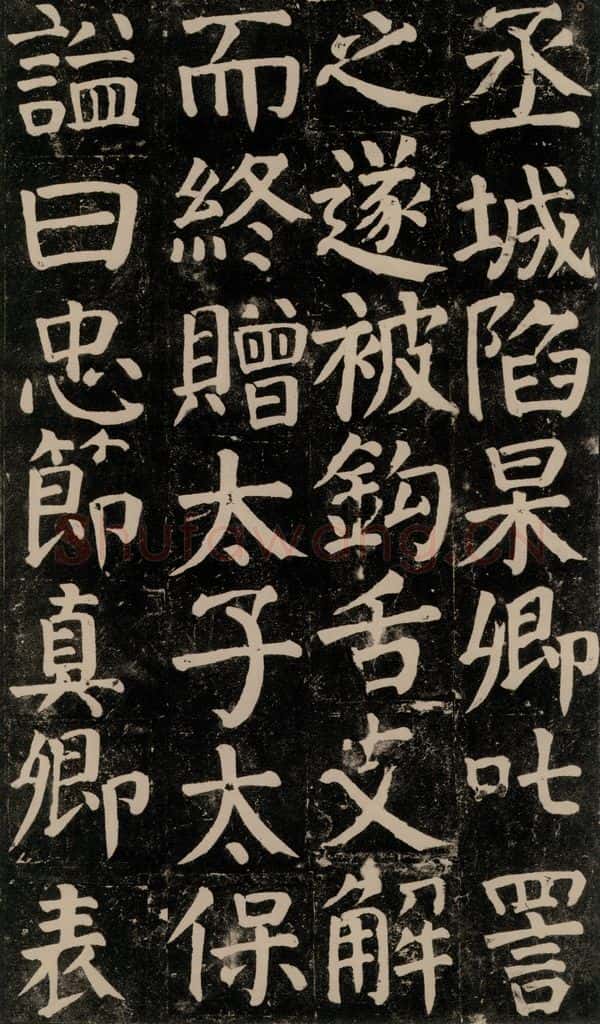 丞城陷杲卿叱詈
之遂被鉤舌支解
而終贈太子太保
謚曰忠節真卿表
shufawang.CN